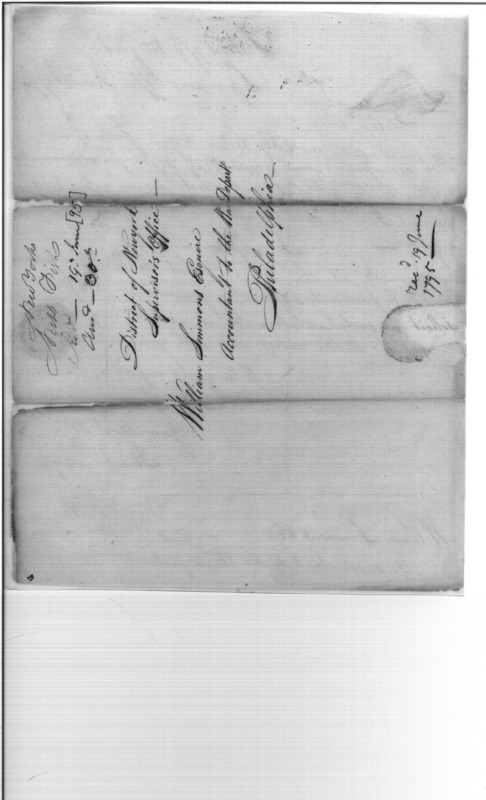 New York
Rec'd — 19th June [95]
Ans'd — 30th
District of Newyork
Supervisor's Office —
William Simmons Esquire
Accountant to the War Depart.
Philadelphia —
rec'd 19 June
1795 —